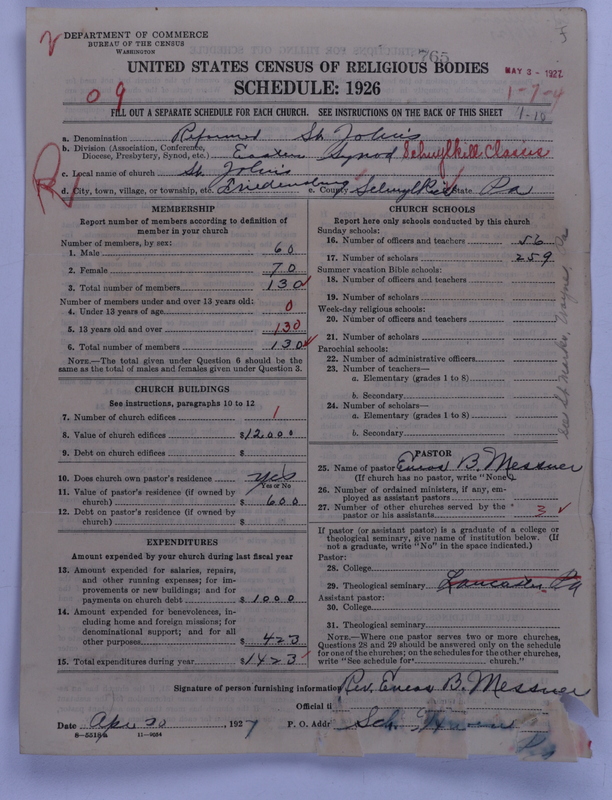 DEPARTMENT OF COMMERCE
BUREAU OF THE CENSUS
WASHINGTON
765
MAY 3 - 1927
UNITED STATES CENSUS OF RELIGIOUS BODIES
SCHEDULE: 1926
09
1-7-4
1-10
FILL OUT A SEPARATE SCHEDULE FOR EACH CHURCH. SEE INSTRUCTIONS ON THE BACK OF THIS SHEET
a. Denomination Reformed St. John's
b. Division (Association, Conference, Diocese, Presbytery, Synod, etc.) Eastern Synod Schuylkill Classis
c. Local name of church St. John's
d. City, town, village, or township, etc. Friedensburg e. County Schuylkill State Pa
MEMBERSHIP
Report number of members according to definition of member in your church
Number of members, by sex:
1. Male 60
2. Female 70
3. Total number of members 130
Number of members under and over 13 years old:
4. Under 13 years of age 0
5. 13 years old and over 130
6. Total number of members 130
NOTE.—The total given under Question 6 should be the same as the total of males and females given under Question 3.
CHURCH BUILDINGS
See instructions, paragraphs 10 to 12
7. Number of church edifices 1
8. Value of church edifices $12000
9. Debt on church edifices $
10. Does church own pastor's residence yes
Yes or No
11. Value of pastor's residence (if owned by church) $ 600
12. Debt on pastor's residence (if owned by church) $
EXPENDITURES
Amount expended by your church during last fiscal year
13. Amount expended for salaries, repairs, and other running expenses; for improvements or new buildings; and for payments on church debt $ 1000
14. Amount expended for benevolences, including home and foreign missions; for denominational support; and for all other purposes $ 423
15. Total expenditures during year $1423
CHURCH SCHOOLS
Report here only schools conducted by this church
Sunday schools:
16. Number of officers and teachers 56
17. Number of scholars 259
Summer vacation Bible schools:
18. Number of officers and teachers
19. Number of scholars
Week-day religious schools:
20. Number of officers and teachers
21. Number of scholars
Parochial schools:
22. Number of administrative officers
23. Number of teachers—
a. Elementary (grades 1 to 8)
b. Secondary
24. Number of scholars—
a. Elementary (grades 1 to 8)
b. Secondary
PASTOR
25. Name of pastor Enos B. Messner
(If church has no pastor, write "None")
26. Number of ordained ministers, if any, employed as assistant pastors
27. Number of other churches served by the pastor or his assistants 3
If pastor (or assistant pastor) is a graduate of a college or theological seminary, give name of institution below. (If not a graduate, write "No" in the space indicated.)
Pastor:
28. College
29. Theological seminary Lancaster, Pa
Assistant pastor:
30. College
31. Theological seminary
NOTE.—Where one pastor serves two or more churches, Questions 28 and 29 should be answered only on the schedule for one of the churches; on the schedules for the other churches, write "See schedule for church."
Signature of person furnishing information Rev. Enos B. Messner
Official ti
Date Apr 20, 1927 P. O. Addr Sch. Haven
8—5518a 11—9034